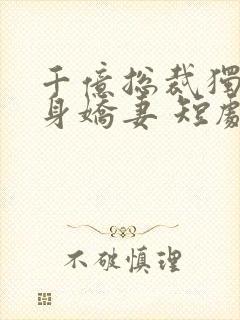 千億總裁獨
身嬌妻 短劇
不破慎理